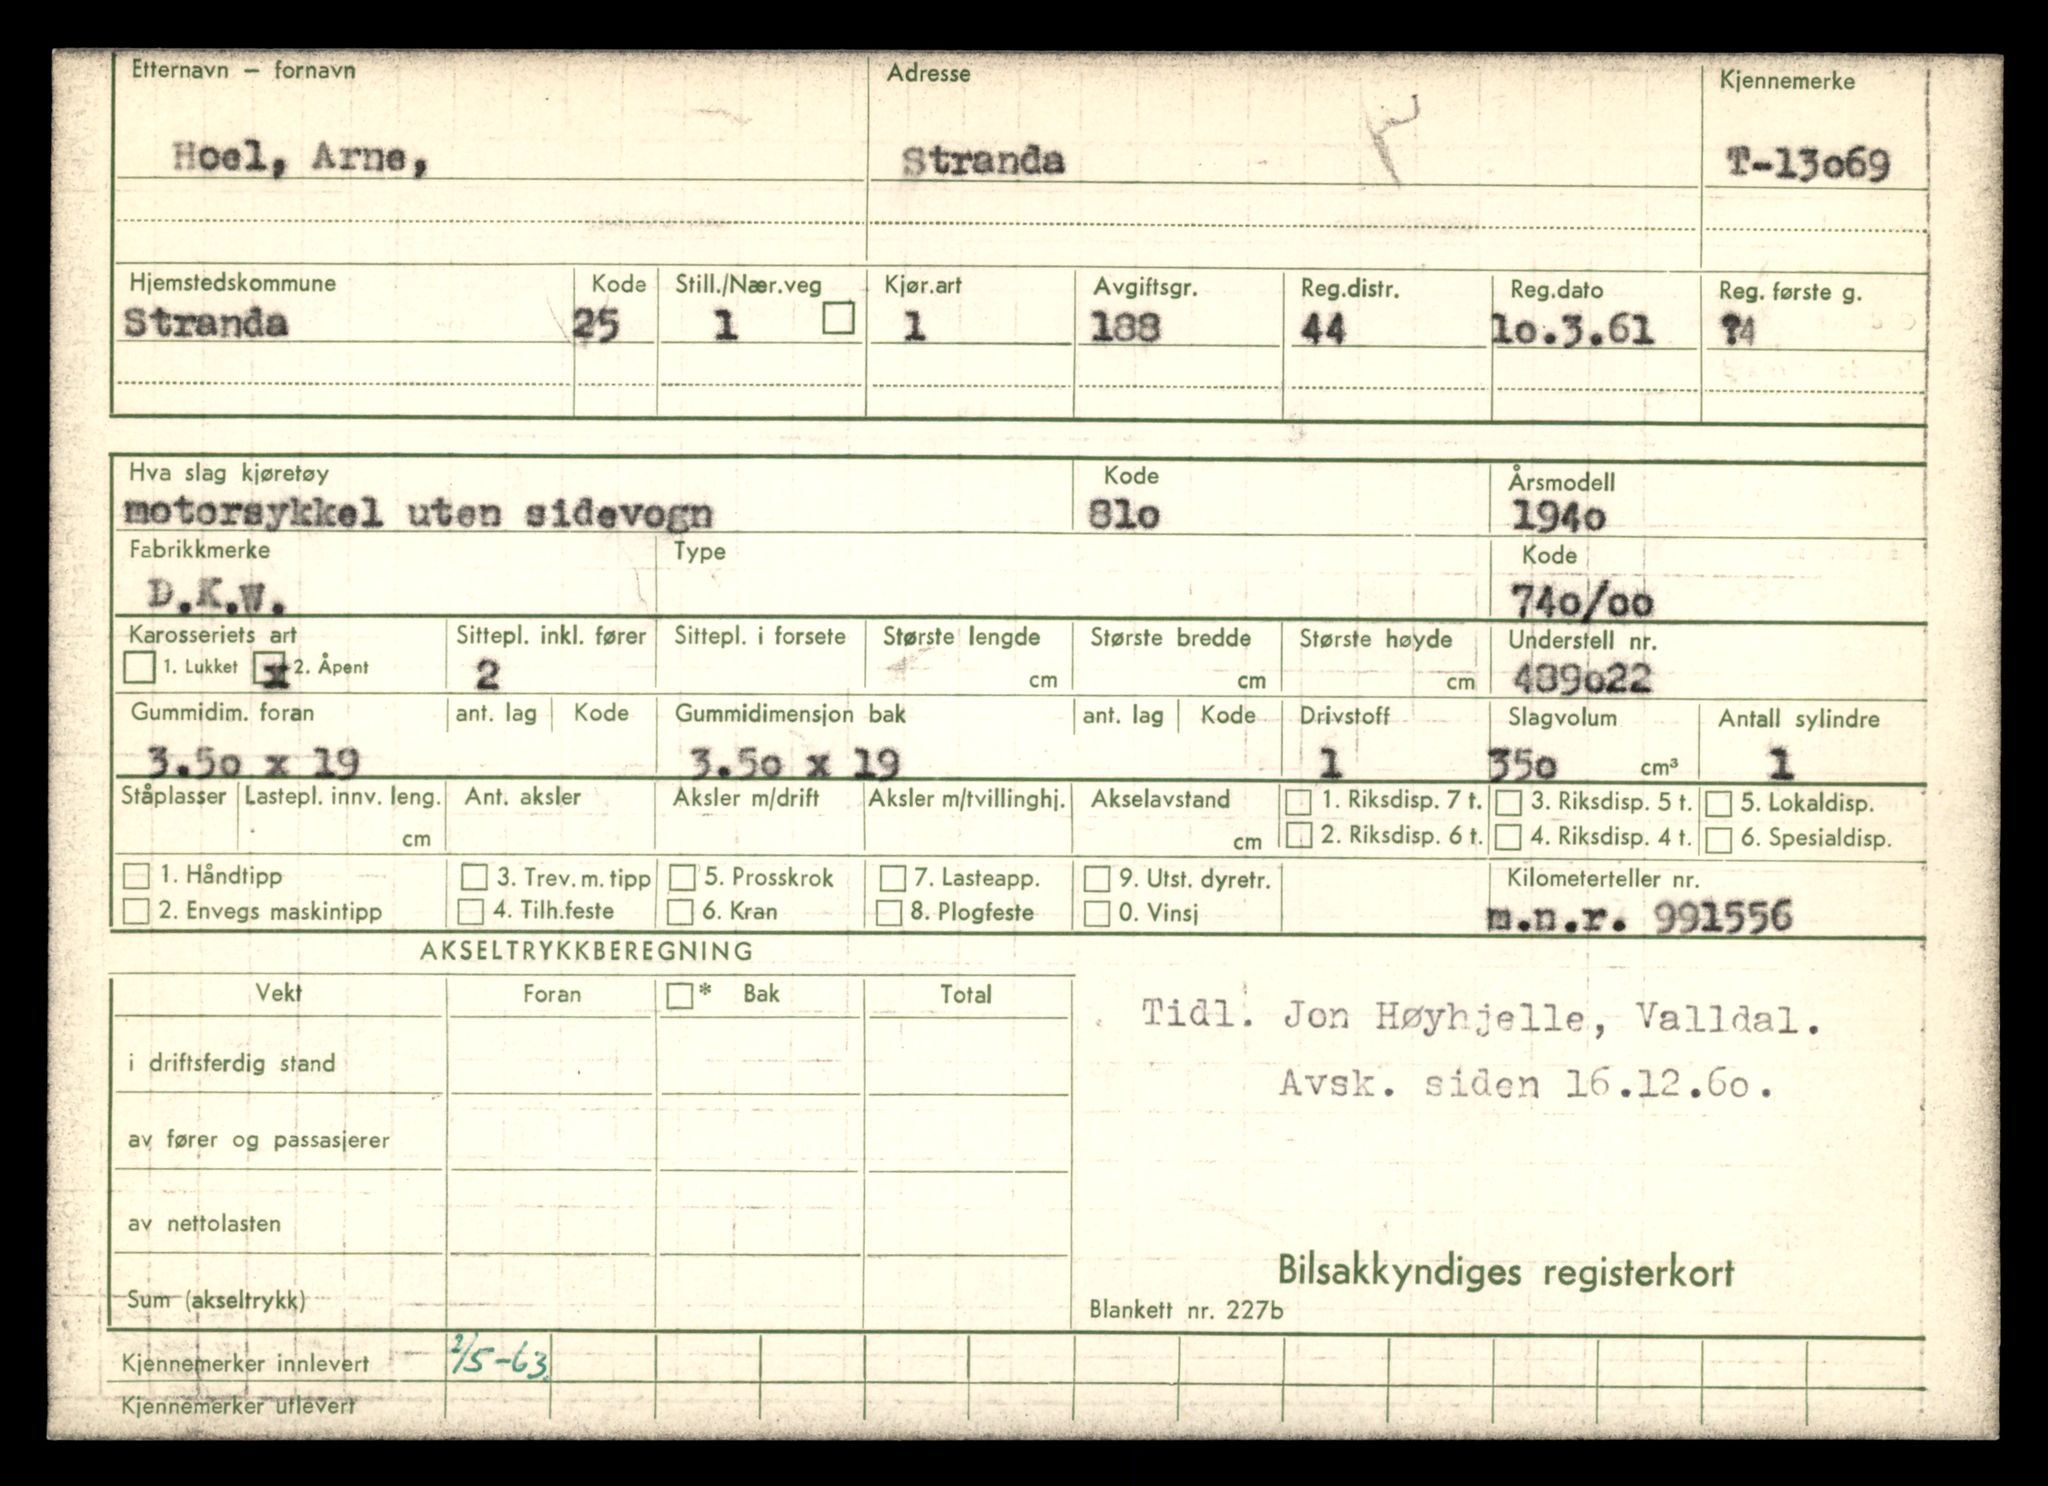 Etternavn – fornavn Adresse Kjennemerke
Hoel, Arne, Stranda T-13o69
Hjemstedskommune Kode Still./Nær.veg Kjør.art Avgiftsgr. Reg.distr. Reg.dato Reg. første g.
Stranda 25 1 1 188 44 1o.3.61
Hva slag kjøretøy Kode Årsmodell
motorsykkel uten sidevogn 81o 194o
Fabrikkmerke Type Kode
D.K.W. 74o/oo
Karosseriets art Sittepl. inkl. fører Sittepl. i forsete Største lengde Største bredde Største høyde Understell nr.
1. Lukket x 2. Åpent 2 cm cm cm 489o22
Gummidim. foran ant. lag Kode Gummidimensjon bak ant. lag Kode Drivstoff Slagvolum Antall sylindre
3.5o x 19 3.5o x 19 1 35o cm³ 1
Ståplasser Lastepl. innv. leng. Ant. aksler Aksler m/drift Aksler m/tvillinghj. Akselavstand 1. Riksdisp. 7 t. 3. Riksdisp. 5 t. 5. Lokaldisp.
cm cm 2. Riksdisp. 6 t. 4. Riksdisp. 4 t. 6. Spesialdisp.
1. Håndtipp 3. Trev. m. tipp 5. Prosskrok 7. Lasteapp. 9. Utst. dyretr. Kilometerteller nr.
2. Envegs maskintipp 4. Tilh.feste 6. Kran 8. Plogfeste 0. Vinsj m.n.r. 991556
AKSELTRYKKBEREGNING
Vekt Foran * Bak Total
Tidl. Jon Høyhjelle, Valldal.
i driftsferdig stand
Avsk. siden 16.12.6o.
av fører og passasjerer
av nettolasten
Bilsakkyndiges registerkort
Sum (akseltrykk)
Blankett nr. 227b
Kjennemerker innlevert 2/5-63.
Kjennemerker utlevert